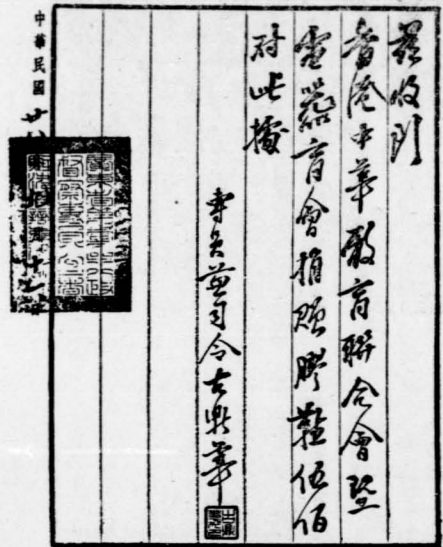 茲收到
香港中華厰商聯合會暨
電器商會捐贈膠鞋伍佰
對此據
專員兼司令古鼎華
中華民國廿